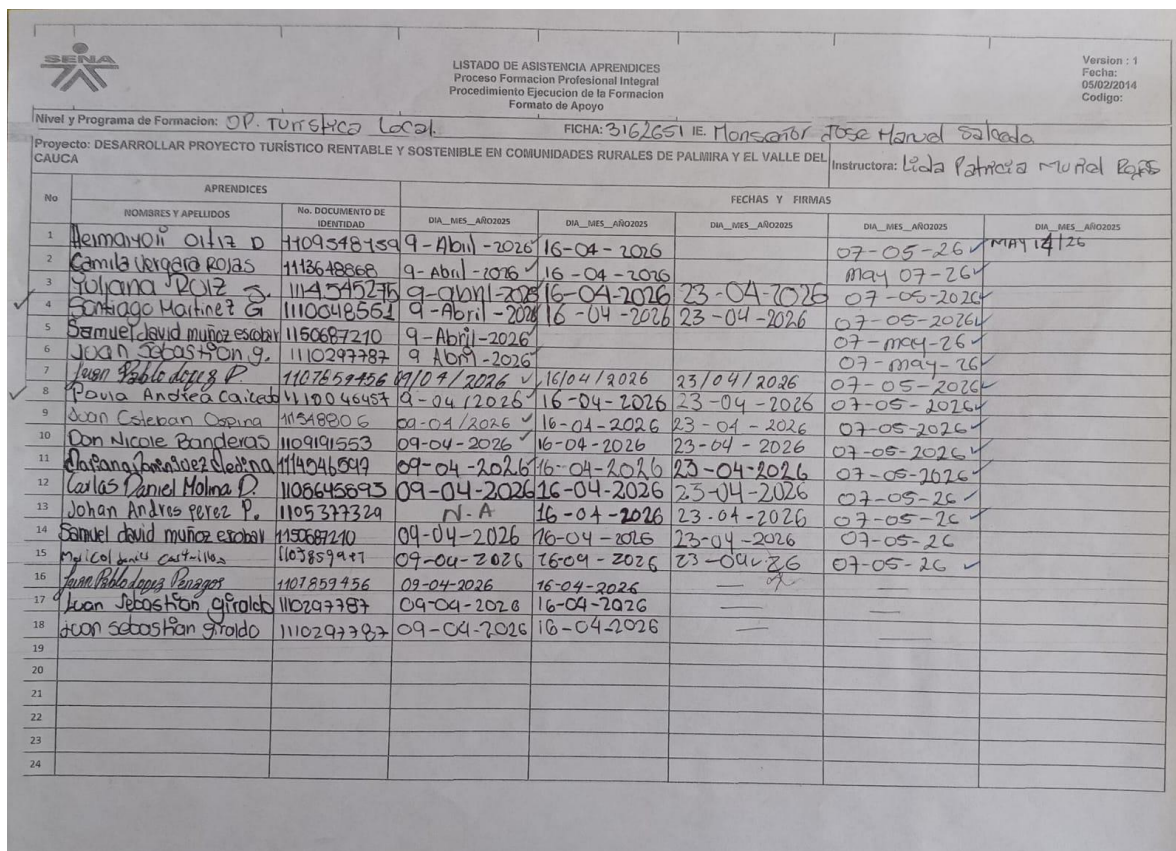 SENA
LISTADO DE ASISTENCIA APRENDICES
Proceso Formacion Profesional Integral
Procedimiento Ejecucion de la Formacion
Formato de Apoyo
Version : 1
Fecha:
05/02/2014
Codigo:
Nivel y Programa de Formacion: OP. Turistica Local. FICHA: 3162651 IE. Monseñor Jose Manuel Salcedo
Proyecto: DESARROLLAR PROYECTO TURÍSTICO RENTABLE Y SOSTENIBLE EN COMUNIDADES RURALES DE PALMIRA Y EL VALLE DEL CAUCA Instructora: Lida Patricia Muriel
No APRENDICES FECHAS Y FIRMAS
NOMBRES Y APELLIDOS No. DOCUMENTO DE IDENTIDAD DIA__MES__AÑO2025 DIA__MES__AÑO2025 DIA__MES__AÑO2025 DIA__MES__AÑO2025 DIA__MES__AÑO2025
1 Ortiz D 1109548159 9-Abril-2026 16-04-2026 07-05-26 MAY 14/26
2 Camila Vergara Rojas 1113648868 9-Abril-2026 16-04-2026 may 07-26
3 Yuliana Ruiz S. 1114545275 9-abril-2026 16-04-2026 23-04-2026 07-05-2026
4 Santiago Martinez G 1110048561 9-Abril-2026 16-04-2026 23-04-2026 07-05-2026
5 Samuel david muñoz escobar 1150687210 9-Abril-2026 07-may-26
6 Juan Sebastian g. 1110297787 9 Abril-2026 07-may-26
7 Juan Pablo Lopez P. 1107859456 09/04/2026 16/04/2026 23/04/2026 07-05-2026
8 Paula Andrea Caicedo 1110046457 9-04/2026 16-04-2026 23-04-2026 07-05-2026
9 Juan Esteban Ospina 09-04/2026 16-04-2026 23-04-2026 07-05-2026
10 Don Nicole Banderas 1109191553 09-04-2026 16-04-2026 23-04-2026 07-05-2026
11 1114546597 09-04-2026 16-04-2026 23-04-2026 07-05-2026
12 Carlas Daniel Molina D. 1105645693 09-04-2026 16-04-2026 23-04-2026 07-05-26
13 Johan Andres perez P. 1105377329 N.A 16-04-2026 23-04-2026 07-05-26
14 Samuel david muñoz escobar 1150687210 09-04-2026 16-04-2026 23-04-2026 07-05-26
15 09-04-2026 16-04-2026 23-04-26 07-05-26
16 Juan Pablo Lopez Penagos 1107859456 09-04-2026 16-04-2026
17 Juan Sebastian giraldo 1110297787 09-04-2026 16-04-2026
18 Juan sebastian giraldo 1110297787 09-04-2026 16-04-2026
19
20
21
22
23
24